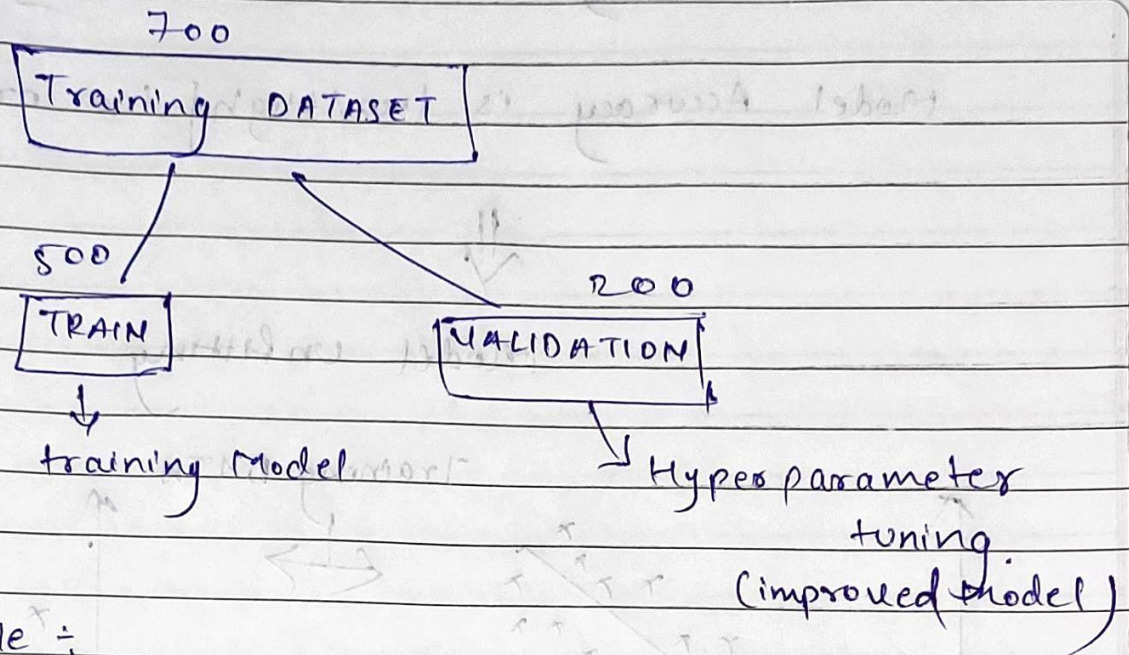 700
Training DATASET
500
200
TRAIN
VALIDATION
training Model
Hyperparameter
tuning
(improved Model)